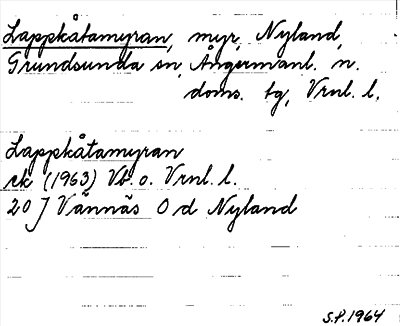 Lappkåtamyran, myr, Nyland,
Grundsunda sn, Ångermanl. n.
doms. tg, Vrnl. l.
Lappkåtamyran
ek (1963) Vb. o. Vrnl. l.
20 J Vännäs O d Nyland
S.P. 1964